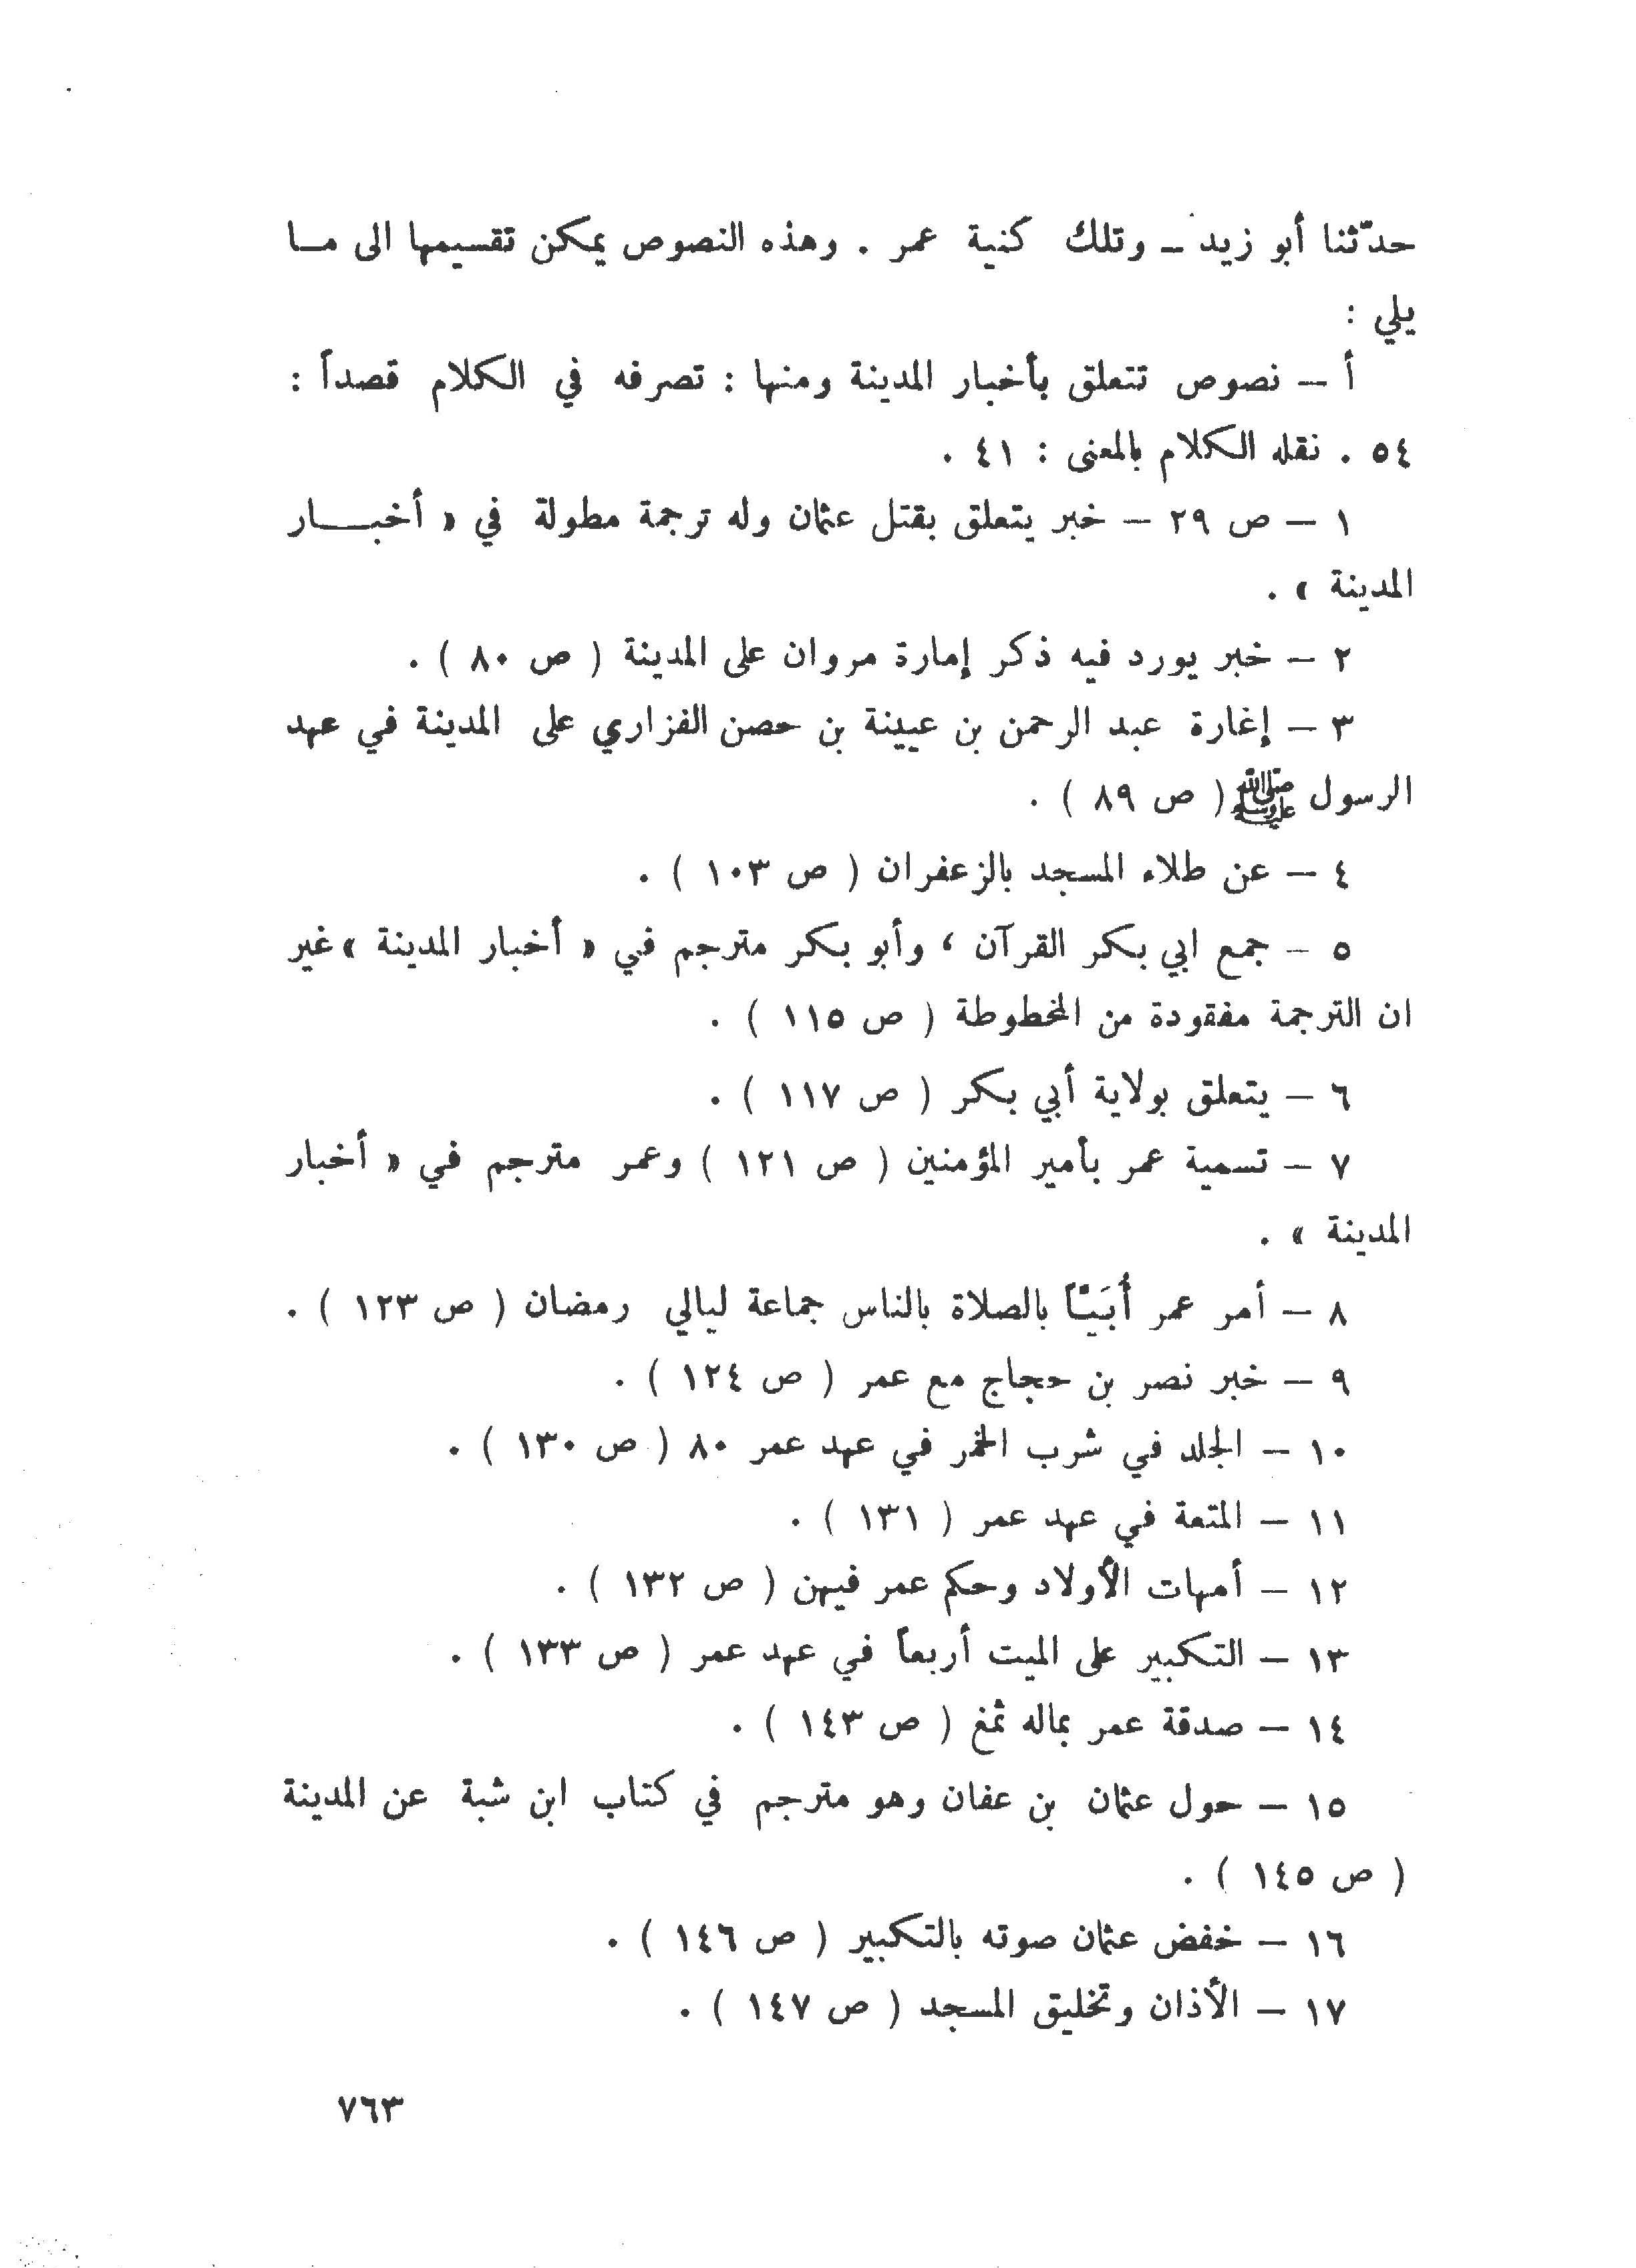 حدّثنا أبو زيد ـ وتلك كنية عمر . وهذه النصوص يمكن تقسيمها الى مـا
يلي :
أ – نصوص تتعلق بأخبار المدينة ومنها : تصرفه في الكلام قصداً :
٥٤ . نقله الكلام بالمعنى : ٤١ .
١ – ص ٢٩ – خبر يتعلق بقتل عثمان وله ترجمة مطولة في « أخبـــار
المدينة » .
٢ – خبر يورد فيه ذكر إمارة مروان على المدينة ( ص ٨٠ ) .
٣ – إغارة عبد الرحمن بن عيينة بن حصن الفزاري على المدينة في عهد
الرسول ﷺ ( ص ٨٩ ) .
٤ – عن طلاء المسجد بالزعفران ( ص ١٠٣ ) .
٥ – جمع ابي بكر القرآن ، وأبو بكر مترجم في « أخبار المدينة » غير
ان الترجمة مفقودة من المخطوطة ( ص ١١٥ ) .
٦ – يتعلق بولاية أبي بكر ( ص ١١٧ ) .
٧ – تسمية عمر بأمير المؤمنين ( ص ١٢١ ) وعمر مترجم في « أخبار
المدينة » .
٨ – أمر عمر أُبَيّاً بالصلاة بالناس جماعة ليالي رمضان ( ص ١٢٣ ) .
٩ – خبر نصر بن حجاج مع عمر ( ص ١٢٤ ) .
١٠ – الجلد في شرب الخمر في عهد عمر ٨٠ ( ص ١٣٠ ) .
١١ – المتعة في عهد عمر ( ١٣١ ) .
١٢ – أمهات الأولاد وحكم عمر فيهن ( ص ١٣٢ ) .
١٣ – التكبير على الميت أربعاً في عهد عمر ( ص ١٣٣ ) .
١٤ – صدقة عمر بماله ثمغ ( ص ١٤٣ ) .
١٥ – حول عثمان بن عفان وهو مترجم في كتاب ابن شبة عن المدينة
( ص ١٤٥ ) .
١٦ – خفض عثمان صوته بالتكبير ( ص ١٤٦ ) .
١٧ – الأذان وتخليق المسجد ( ص ١٤٧ ) .
٧٦٣